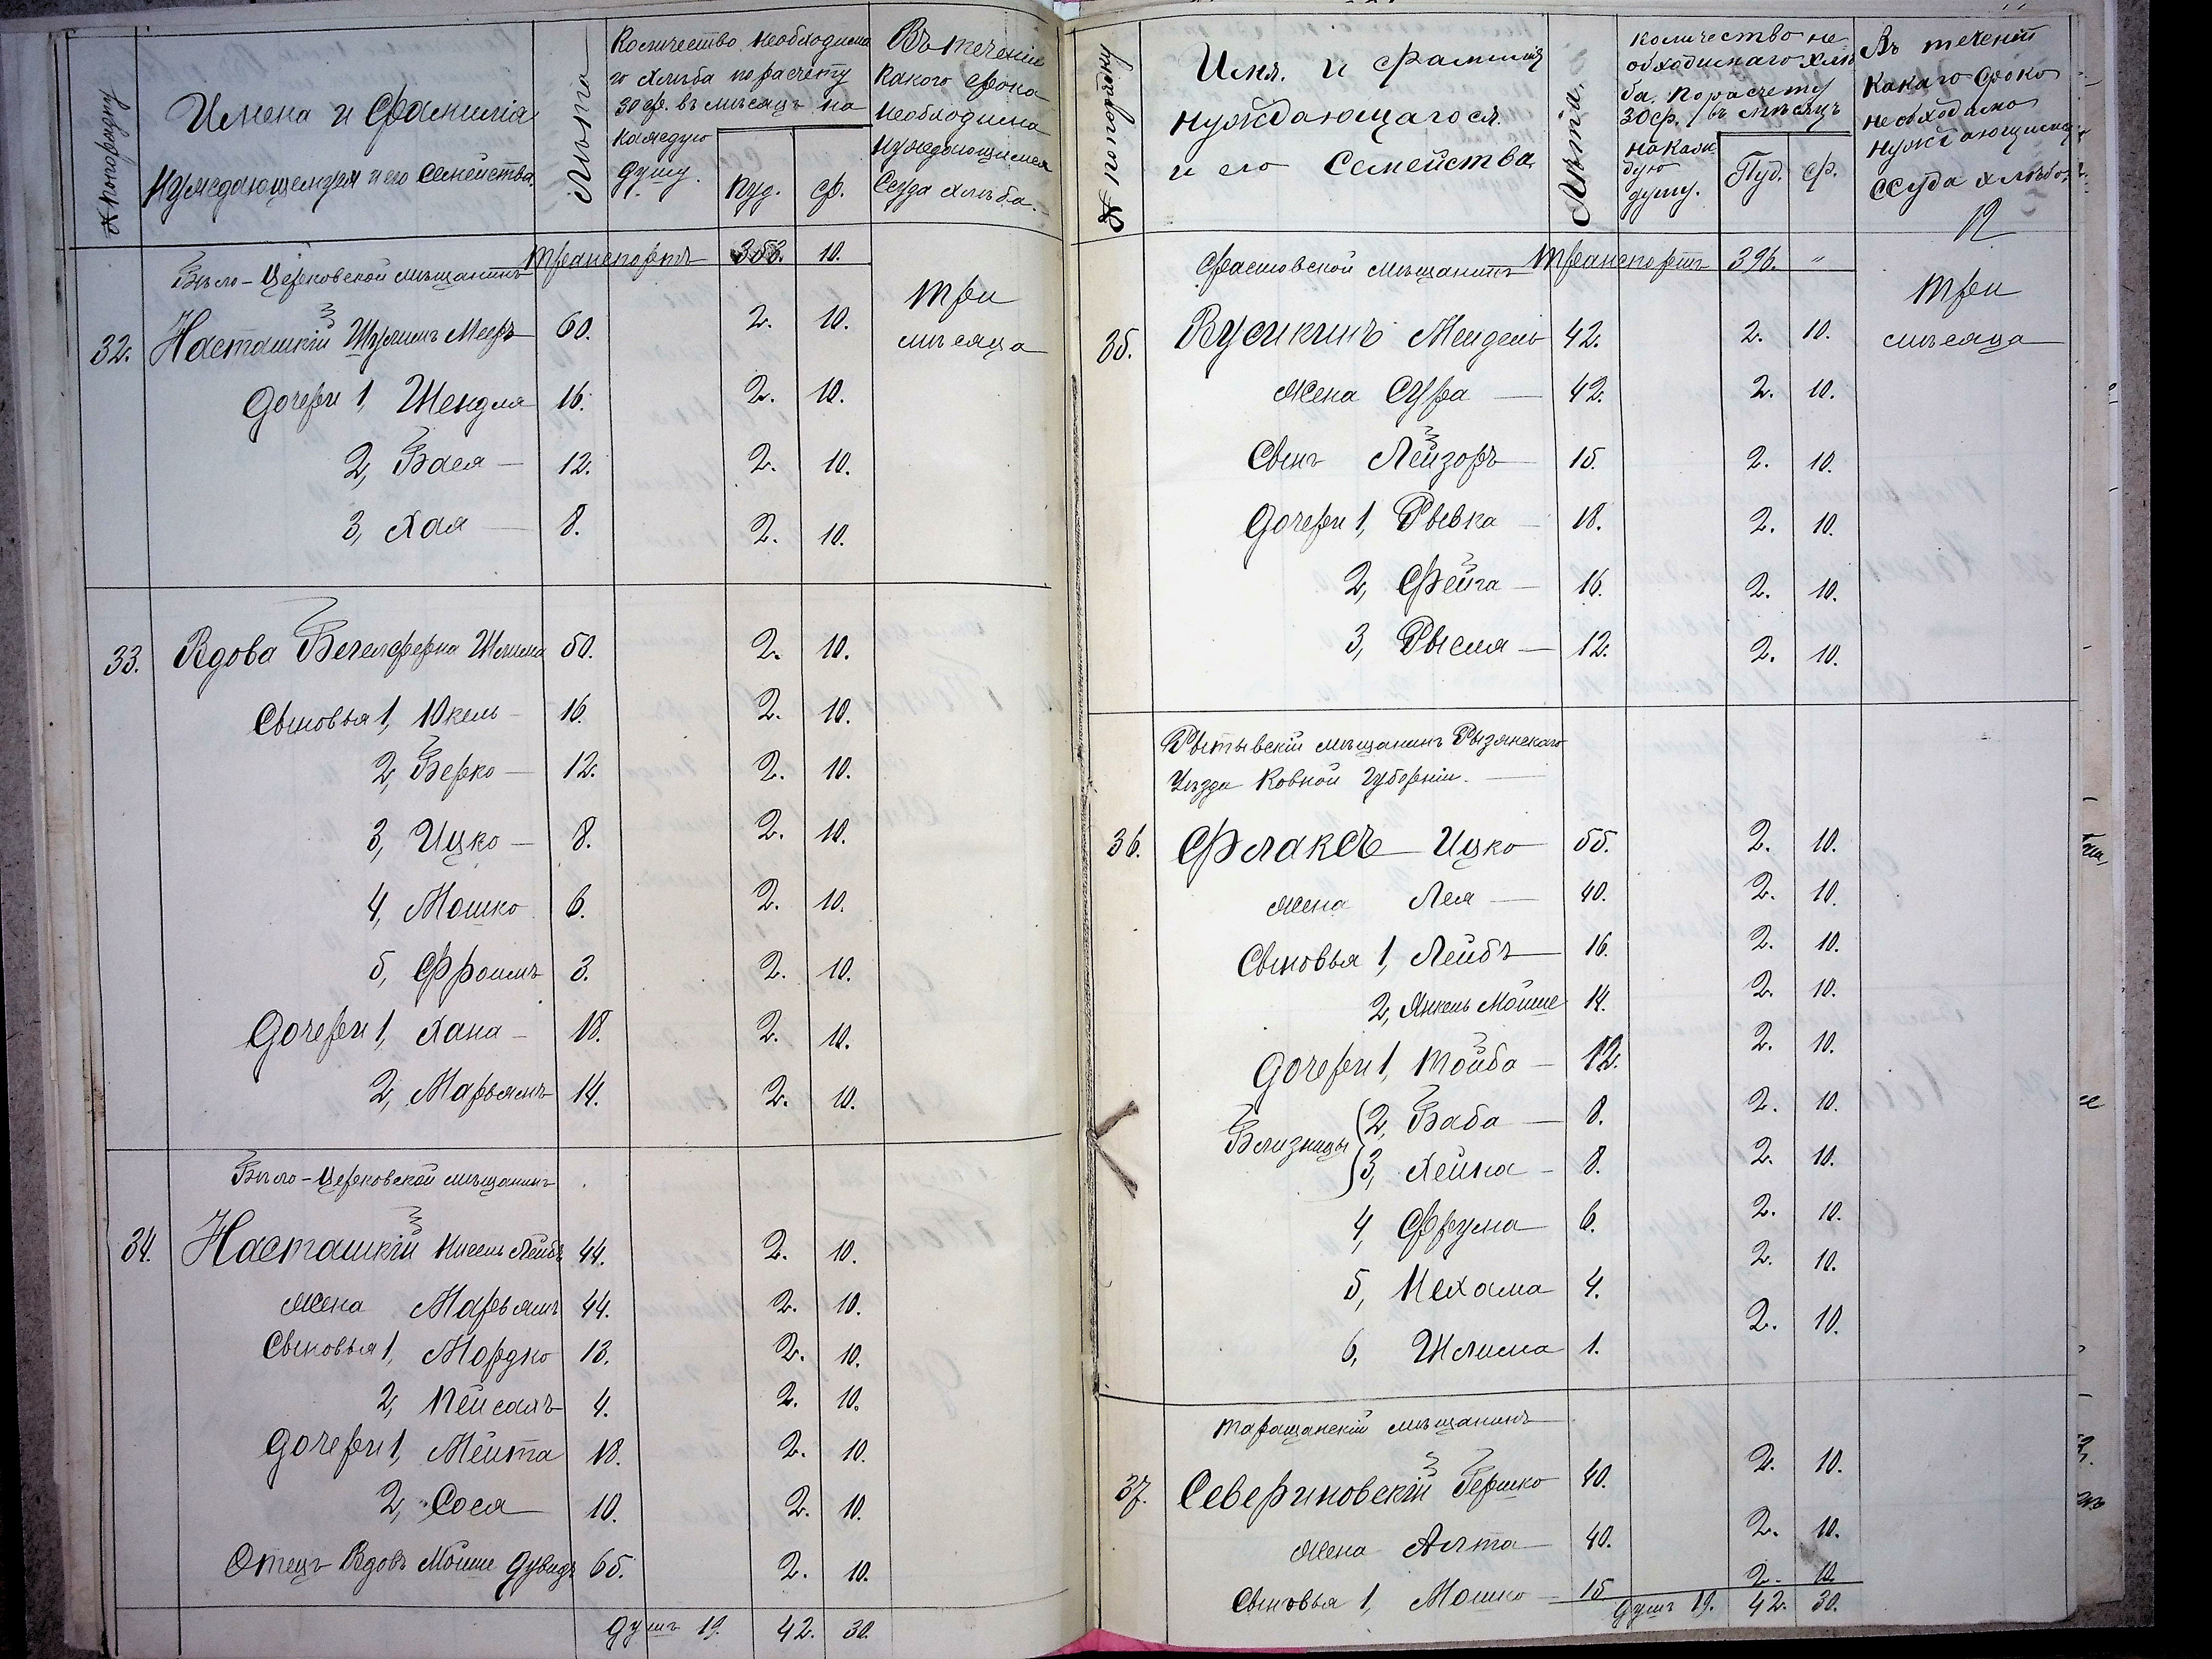 № по порядку
Имена и Фамилія
нуждающемуся и его Семейства.
Лѣта
Количество необходима
го хлѣба по расчету
30 ф. въ мѣсяцъ на
каждую
душу.
Пуд.
Ф.
Въ теченіе
какого срока
необходима
нуждающимся
Ссуда хлѣба.
Транспортъ 353. 10.
Бѣло-Церковской мѣщанинъ
Три
мѣсяца
32. Насташкій Шулимъ Мееръ 60. 2. 10.
Дочери 1, Шендля 16. 2. 10.
2, Бася — 12. 2. 10.
3, Хая — 8. 2. 10.
33. Вдова Шлима 50. 2. 10.
Сыновья 1, Юкель — 16. 2. 10.
2, Берко — 12. 2. 10.
3, Ицко — 8. 2. 10.
4, Мошко 6. 2. 10.
5, Фроимъ 3. 2. 10.
Дочери 1, Хана — 18. 2. 10.
2, Марьямъ 14. 2. 10.
Бѣло-Церковской мѣщанинъ
34. Насташкій Кисель Лейбъ 44. 2. 10.
Жена Марьямъ 44. 2. 10.
Сыновья 1, Мордко 13. 2. 10.
2, Пейсахъ 4. 2. 10.
Дочери 1, Мейта 18. 2. 10.
2, Сося 10. 2. 10.
Отецъ Вдовъ Мойше Дувидъ 65. 2. 10.
Душъ 19. 42. 30.
№ по порядку
Имя. и фамилія
нуждающагося
и его Семейства
Лѣта.
Количество не
обходимаго хлѣ
ба. По расчету
30 ф. въ мѣсяцъ
на каж
дую
душу.
Пуд.
Ф.
Въ теченіи
какаго срока
необходимо
нуждающимся
ссуда хлѣба.
12
Фастовской мѣщанинъ Транспортъ 396. "
Три
мѣсяца
35. Вусикинъ Мендель 42. 2. 10.
Жена Сура — 42. 2. 10.
Сынъ Лейзоръ — 15. 2. 10.
Дочери 1, Рывка — 18. 2. 10.
2, Фейга — 16. 2. 10.
3, Рысля — 12. 2. 10.
мѣщанинъ
Уѣзда Ковной Губерніи. —
36. Флаксъ Ицко 55. 2. 10.
Жена Лея — 40. 2. 10.
Сыновья 1, Лейбъ — 16. 2. 10.
2, Янкель Мойше 14. 2. 10.
Дочери 1, Тойба — 12. 2. 10.
Близницы 2, Баба — 8. 2. 10.
3, Хейна — 8. 2. 10.
4, Фрума 6. 2. 10.
5, Нехама 4. 2. 10.
6, Шлима 1. 2. 10.
Таращанскій мѣщанинъ
37. Севериновскій Гершко 40. 2. 10.
Жена Алта 40. 2. 10.
Сыновья 1, Мошко — 15 2. 10.
Душъ 19. 42. 30.